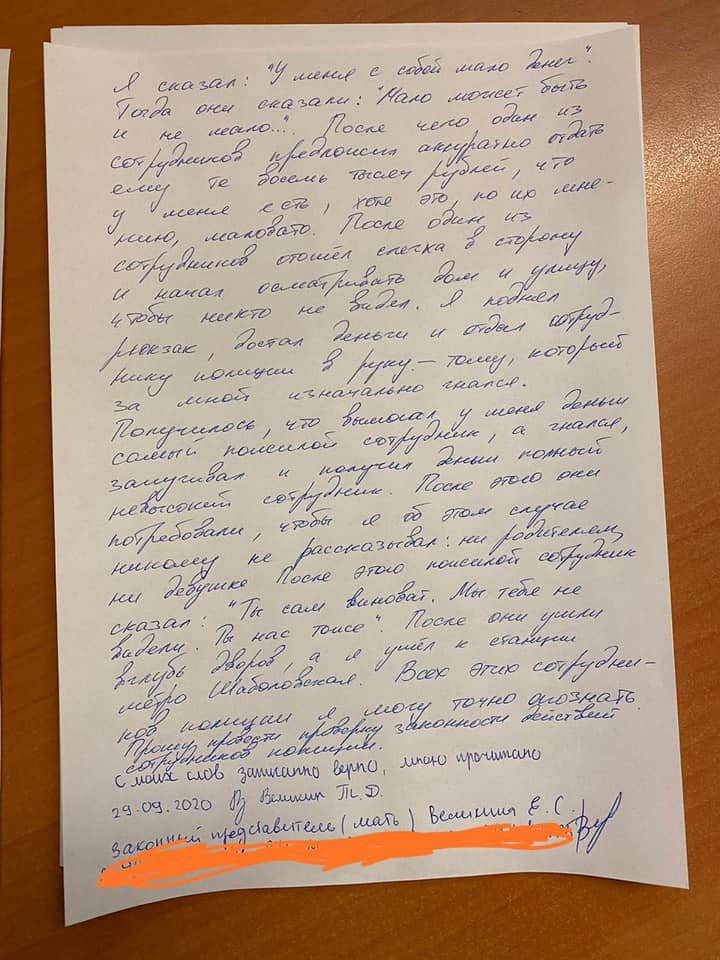 Я сказал: "У меня с собой мало денег".
Тогда они сказали: "Мало может быть
и не мало...". После чего один из
сотрудников предложил аккуратно отдать
ему те восемь тысяч рублей, что
у меня есть, хотя это, по их мне-
нию, маловато. После один из
сотрудников отошёл слегка в сторону
и начал осматривать дом и улицу,
чтобы никто не видел. Я поднял
рюкзак, достал деньги и отдал сотруд-
нику полиции в руку – тому, который
за мной изначально гнался.
Получилось, что вымогал у меня деньги
самый пожилой сотрудник, а гнался,
запугивал и получил деньги полный
невысокий сотрудник. После этого они
потребовали, чтобы я об этом случае
никому не рассказывал: ни родителям,
ни девушке. После этого пожилой сотрудник
сказал: "Ты сам виноват. Мы тебя не
видели. Ты нас тоже". После они ушли
вглубь дворов, а я ушёл к станции
метро Шаболовская. Всех этих сотрудни-
ков полиции я могу точно опознать.
Прошу провести проверку законности действий
сотрудников полиции.
С моих слов записано верно, мною прочитано
29.09.2020 Т.Д.
Законный представитель (мать) Е.С.